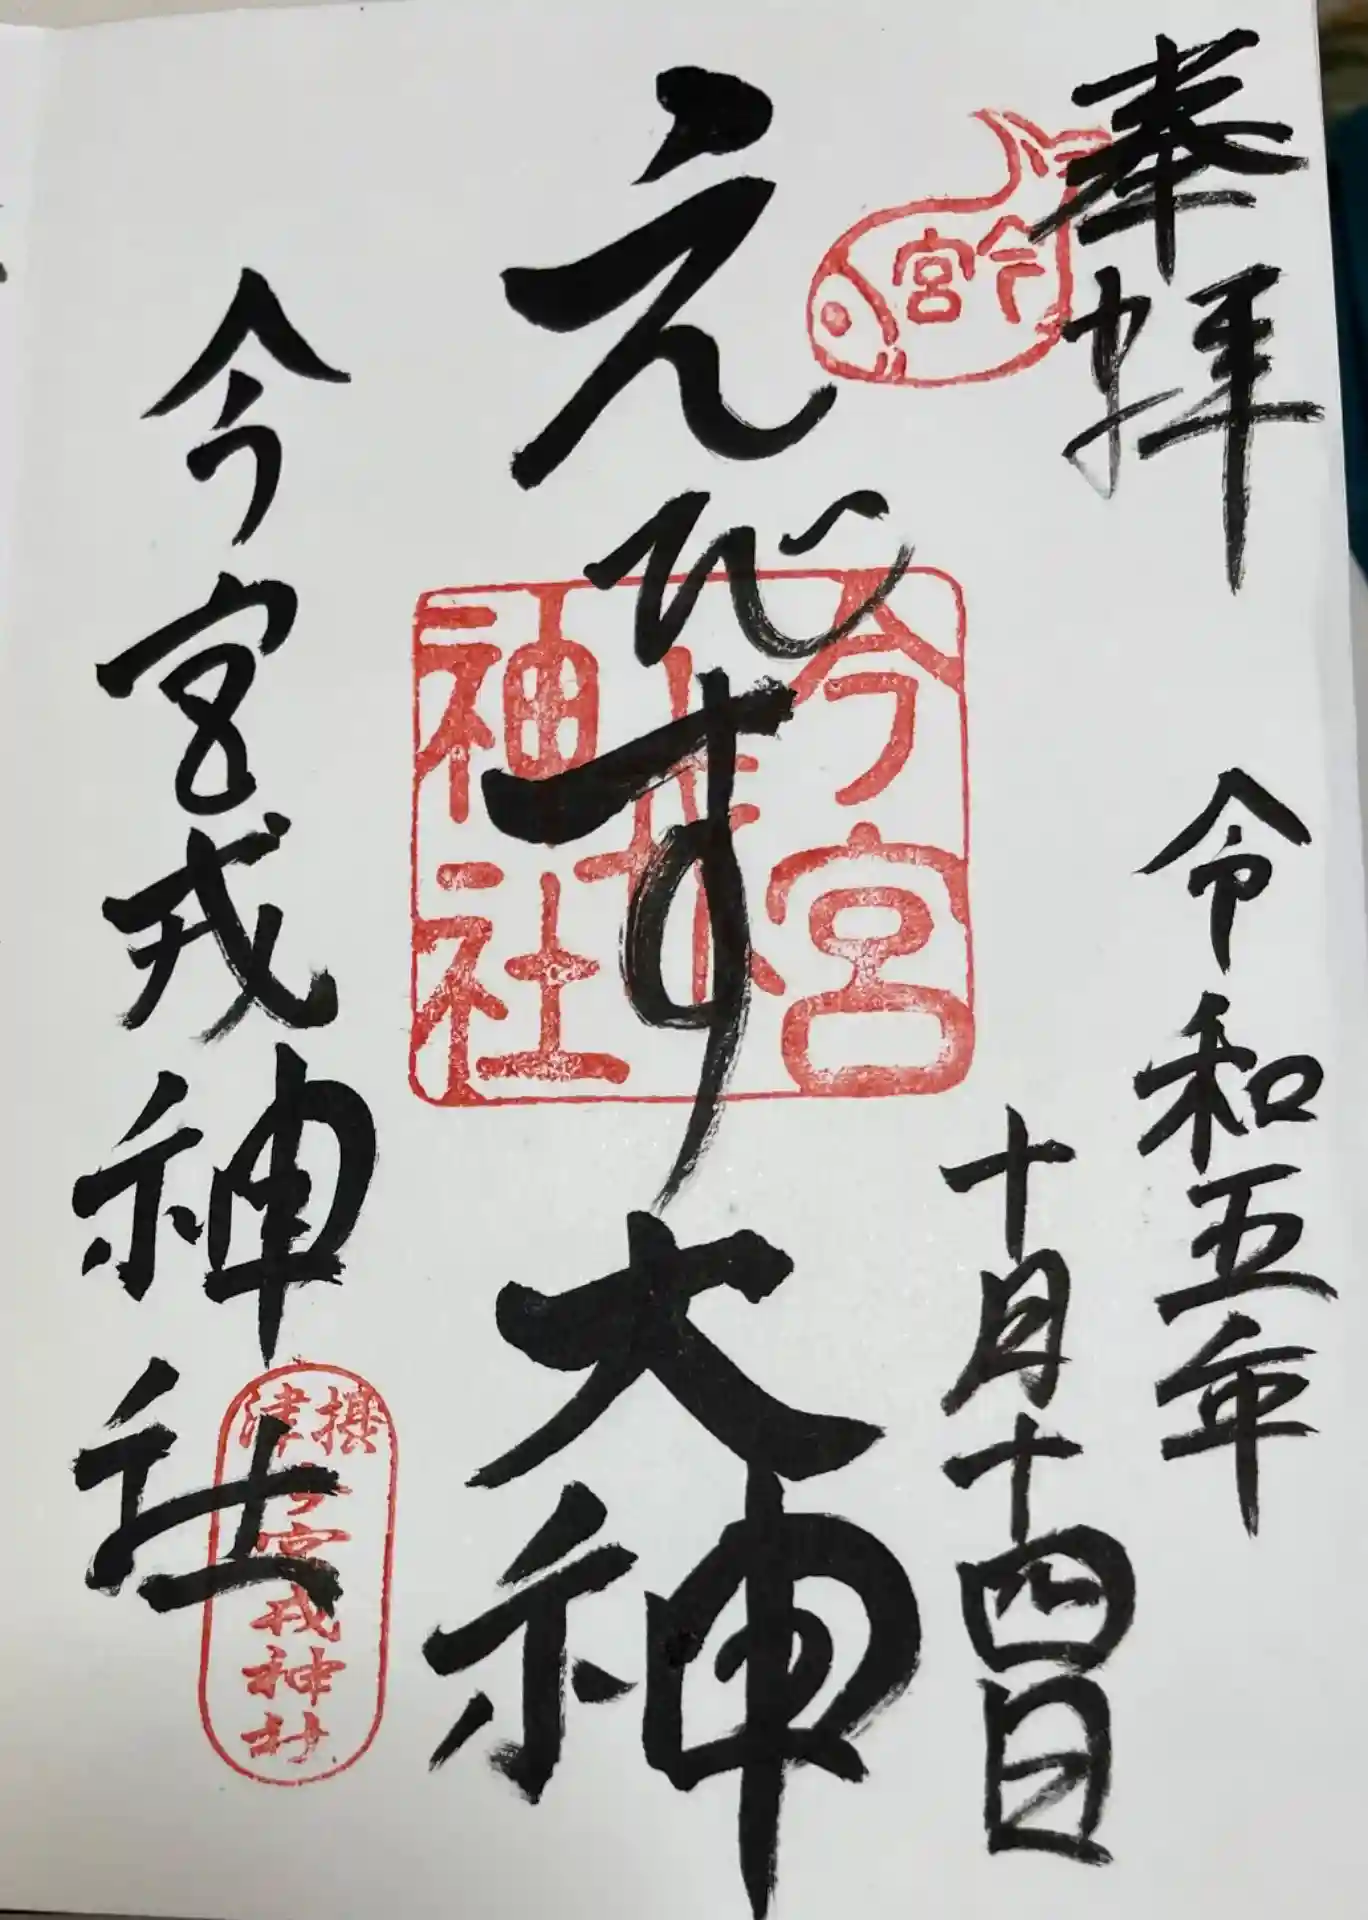 奉拝
令和五年
十月十四日
今宮
えびす大神
今宮
戎
神社
今宮戎神社
摂津
今宮戎神社